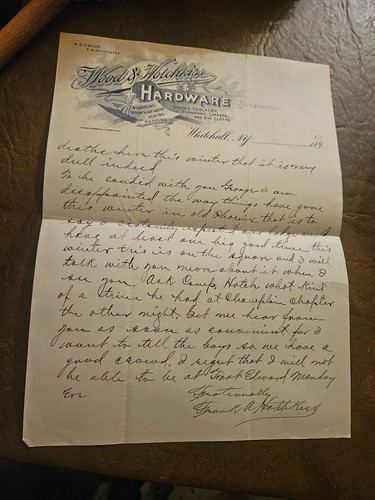 W.D.C. WOOD.
F.A. HOTCHKISS.
Wood & Hotchkiss
HARDWARE
STOVES, CROCKERY,
FURNITURE, CARPETS,
AND OIL CLOTHS.
PLUMBING
STEAM & HOT WATER
HEATING
ROOFING
Whitehall, N.Y. 189
deaths here this winter that it is very
dull indeed
To be candid with you George I am
disappointed the way things have gone
this winter in old Phoenix that is to
say I certainly expected our lodge would
have at least one big good time this
winter this is on the square and I will
talk with you more about it when I
see you. Ask Comp. Hotch what kind
of a time he had at Champlain Chapter
the other night. Let me hear from
you as soon as convenient for I
want to tell the boys so we have a
good crowd. I regret that I will not
be able to be at Fort Edward Monday
Eve Fraternally
Frank A Hotchkiss